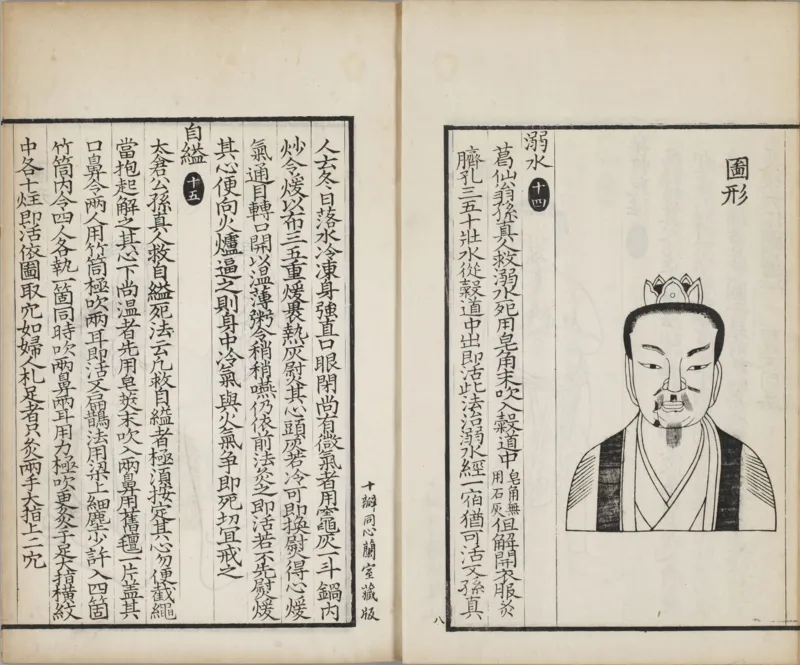 圖形
溺水 十四
葛仙翁孫真人救溺水死用皂角末吹入穀道中皂角無用石灰但解開衣服灸
臍孔三五十壯水從穀道中出即活此法治溺水經一宿猶可活又孫真
八
人云冬日落水冷凍身強直口眼閉尚有微氣者用竈灰一斗鍋內
炒令煖以布三五重煖裹熱灰熨其心頭灰若冷可即換熨令得心煖
氣通目轉口開以溫薄粥令稍稍嚥仍依前法灸之即活若不先熨煖
其心便向火爐逼之則身中冷氣與火氣爭即死切宜戒之
自縊 十五
太倉公孫真人救自縊死法云凡救自縊者極須按定其心勿便截繩
當抱起解之其心下尚溫者先用皂莢末吹入兩鼻用舊氈一片蓋其
口鼻令兩人用竹筒極吹兩耳即活又扁鵲法用梁上細塵少許入四箇
竹筒內令四人各執一箇同時吹兩鼻兩耳用力極吹更灸手足大指橫紋
中各十炷即活依圖取穴如婦人札足者只灸兩手大指上二穴
十瓣同心蘭室藏版